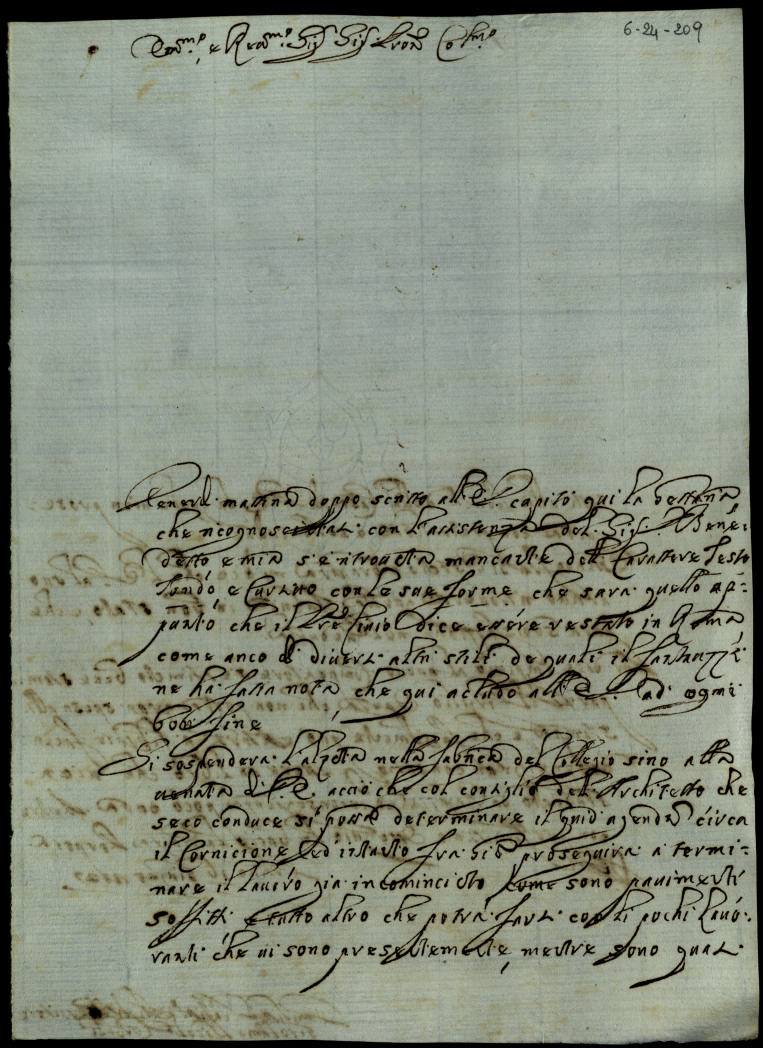 6-24-209
Em.mo, e Reu.mo Sig.r Sig.r Pron Col.mo
Venerdi mattina doppo scritto all'E. capitò qui la
che ricognosciutasi con l'assistenza del Sig.r Bene-
detto e mia s'è ritrovata mancante dell Carattere Testo
Tondo e Cursivo con le sue forme che sarà quello ap-
punto che il dice essere restato in Roma
come anco di diversi altri stili de quali il
ne ha fatta nota che qui acludo all'E. ad ogni
bon fine
Si sospenderà l'alzata nella fabrica del Collegio sino alla
venuta di V.E. acciò che col consiglio dell'Architetto che
seco conduce si possa determinare il quid agendum circa
il Cornicione ed intanto si proseguirà a termi-
nare il lavoro già incominciato come sono pavimenti
soffitti e tutto altro che potrà farsi con li pochi lavo-
ranti che vi sono presentemente, mentre sono quasi